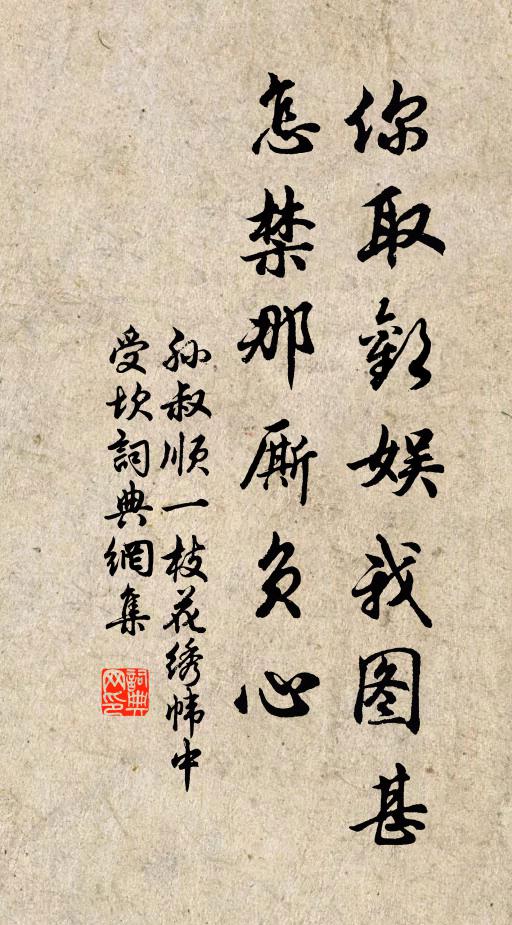 你取歡娱我图甚
怎禁那厮负心
孙叔顺一枝花绣帏中
受坎詞典網集
詞典网印